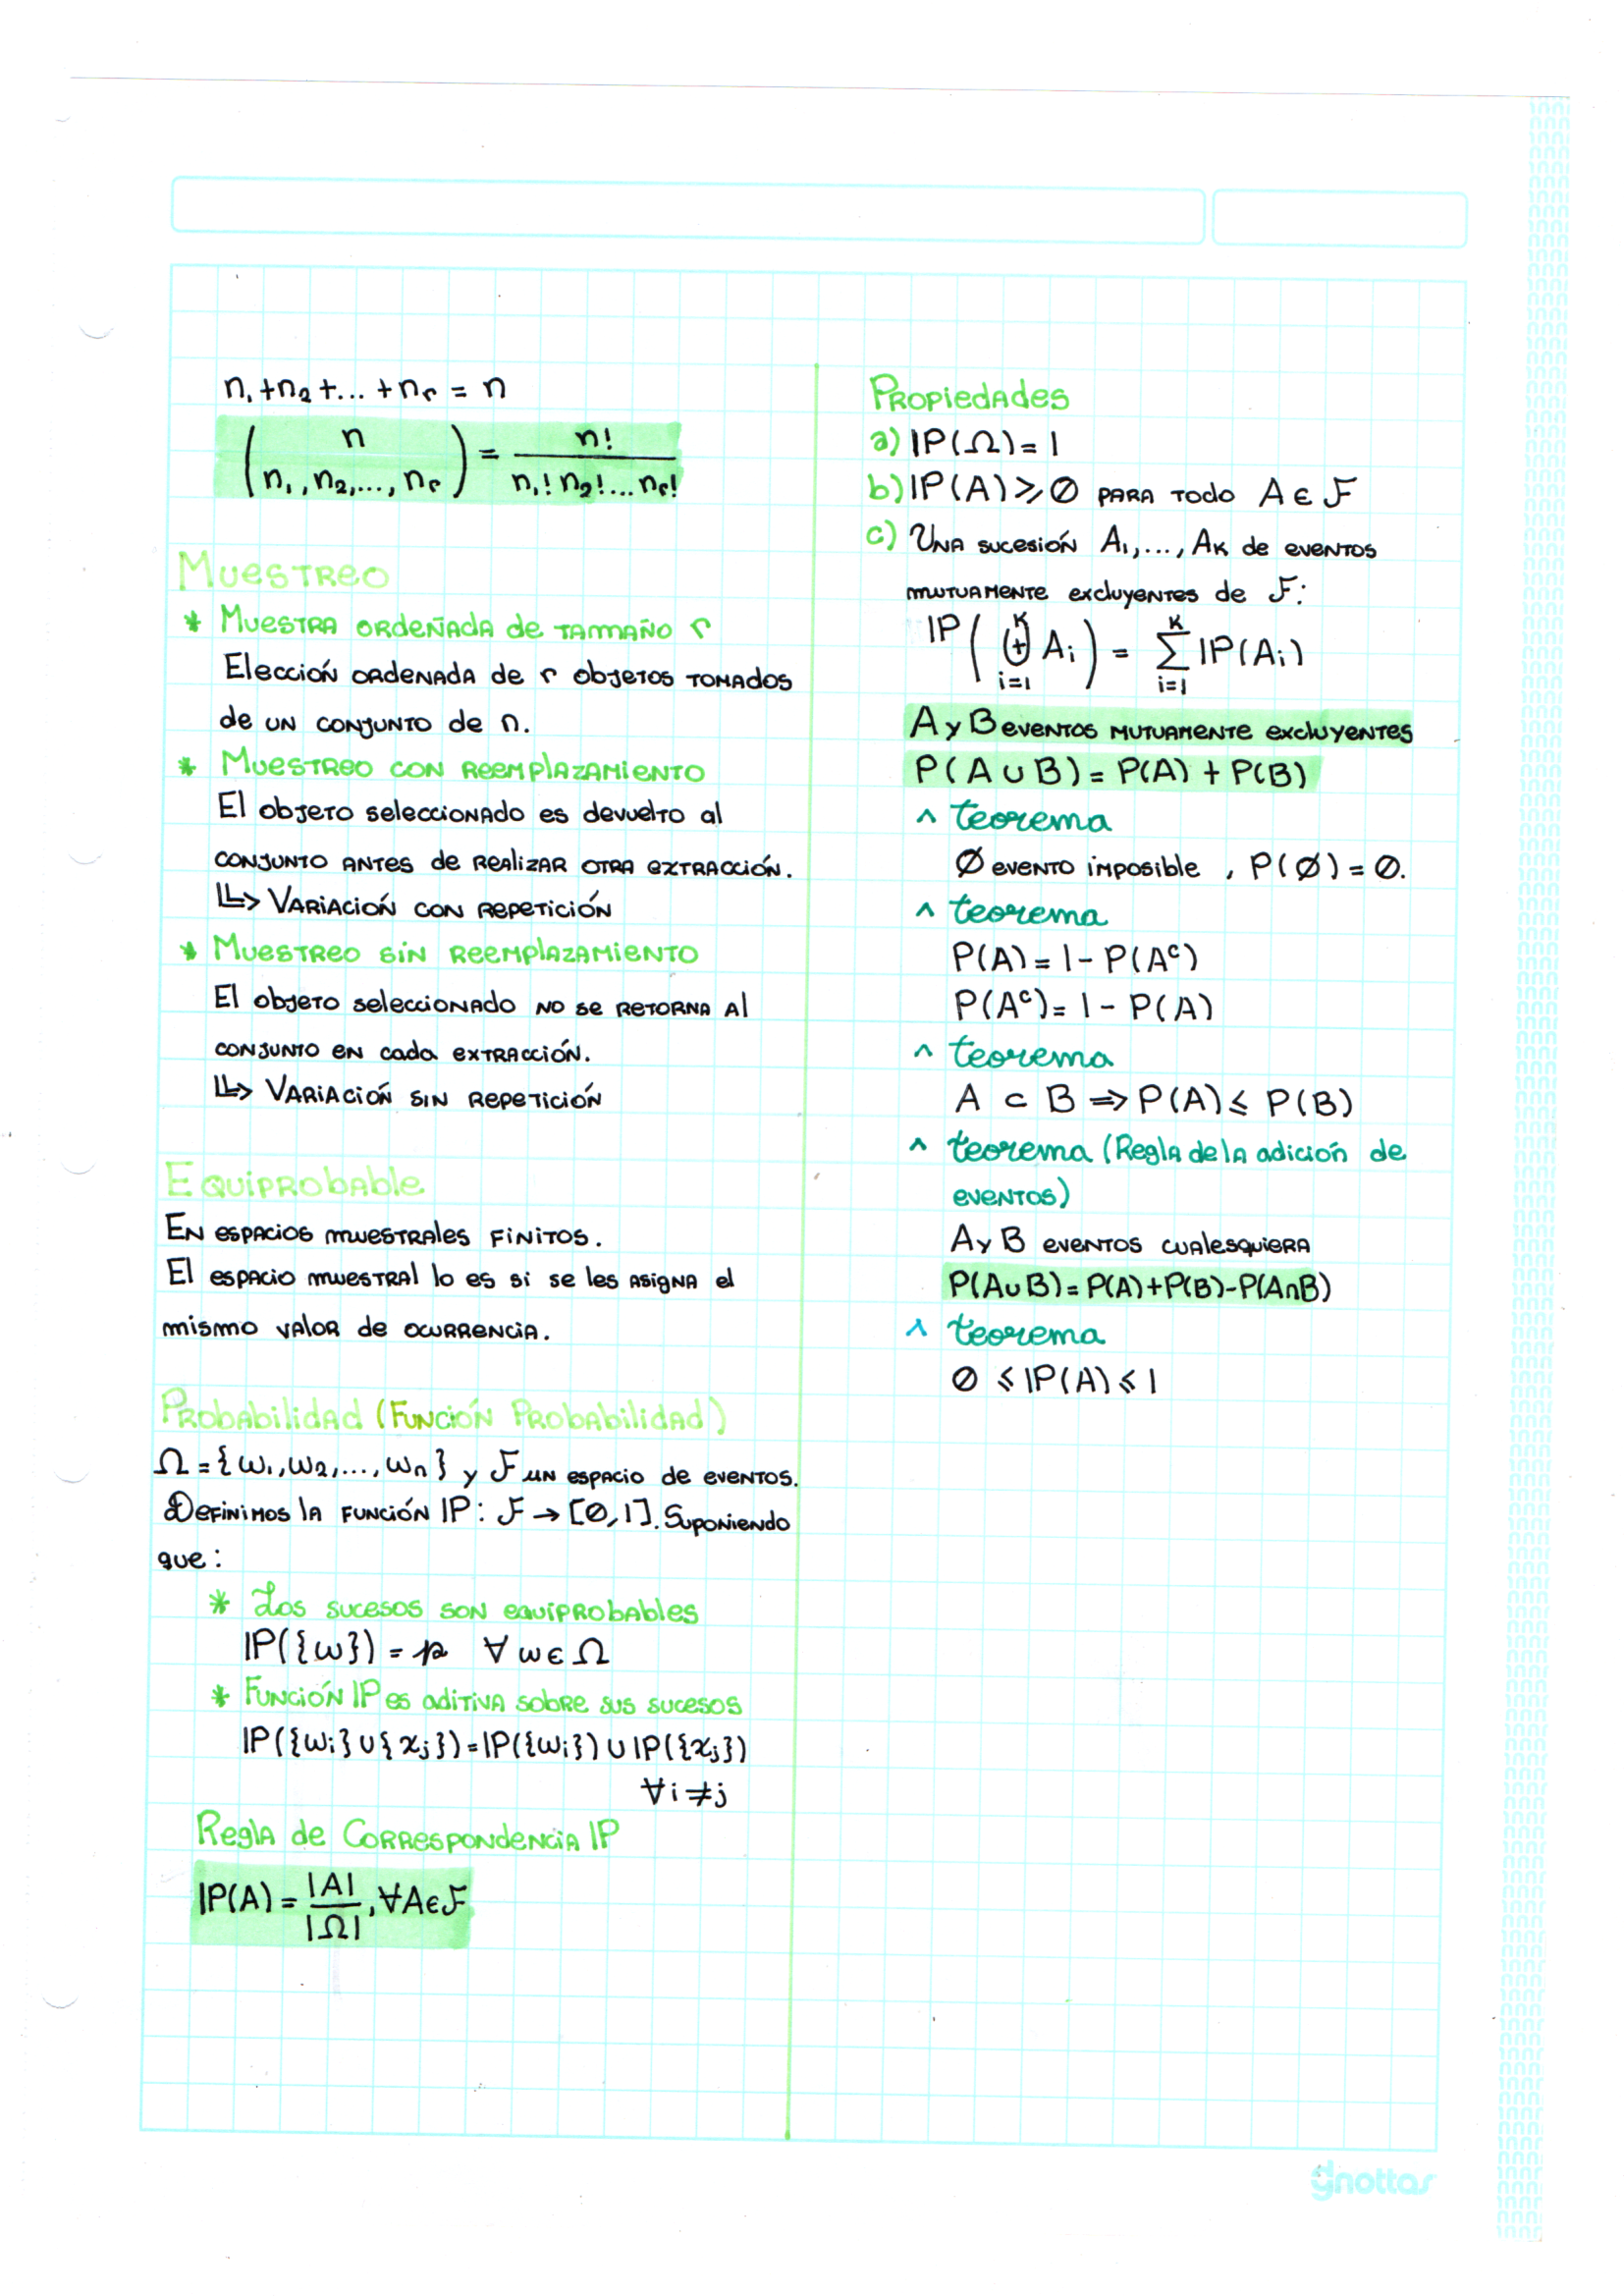 n₁+n₂+...+nᵣ = n
(n / n₁,n₂,...,nᵣ) = n! / n₁!n₂!...nᵣ!
Muestreo
* Muestra ordeñada de tamaño r
Elección ordenada de r objetos tomados
de un conjunto de n.
* Muestreo con reemplazamiento
El objeto seleccionado es devuelto al
conjunto antes de realizar otra extracción.
↳> Variación con repetición
* Muestreo sin reemplazamiento
El objeto seleccionado no se retorna al
conjunto en cada extracción.
↳> Variación sin repetición
Equiprobable
En espacios muestrales finitos.
El espacio muestral lo es si se les asigna el
mismo valor de ocurrencia.
Probabilidad (Función Probabilidad)
Ω = {ω₁,ω₂,...,ωₙ} y ℱ un espacio de eventos.
Definimos la función ℙ: ℱ → [0,1]. Suponiendo
que:
* Los sucesos son equiprobables
ℙ({ω}) = p ∀ ω∈Ω
* Función ℙ es aditiva sobre sus sucesos
ℙ({ωᵢ}∪{xⱼ}) = ℙ({ωᵢ}) ∪ ℙ({xⱼ})
∀i≠j
Regla de Correspondencia ℙ
ℙ(A) = |A| / |Ω|, ∀A∈ℱ
Propiedades
a) ℙ(Ω) = 1
b) ℙ(A) ⩾ 0 para todo A∈ℱ
c) Una sucesión A₁,...,Aₖ de eventos
mutuamente excluyentes de ℱ:
ℙ(⨄ᵢ₌₁ᴷ Aᵢ) = ∑ᵢ₌₁ᴷ ℙ(Aᵢ)
A y B eventos mutuamente excluyentes
P(A∪B) = P(A) + P(B)
^ teorema
Ø evento imposible, P(Ø) = 0.
^ teorema
P(A) = 1 - P(Aᶜ)
P(Aᶜ) = 1 - P(A)
^ teorema
A ⊂ B ⇒ P(A) ⩽ P(B)
^ teorema (Regla de la adición de
eventos)
A y B eventos cualesquiera
P(A∪B) = P(A)+P(B)-P(A∩B)
^ teorema
0 ⩽ ℙ(A) ⩽ 1
gnottas